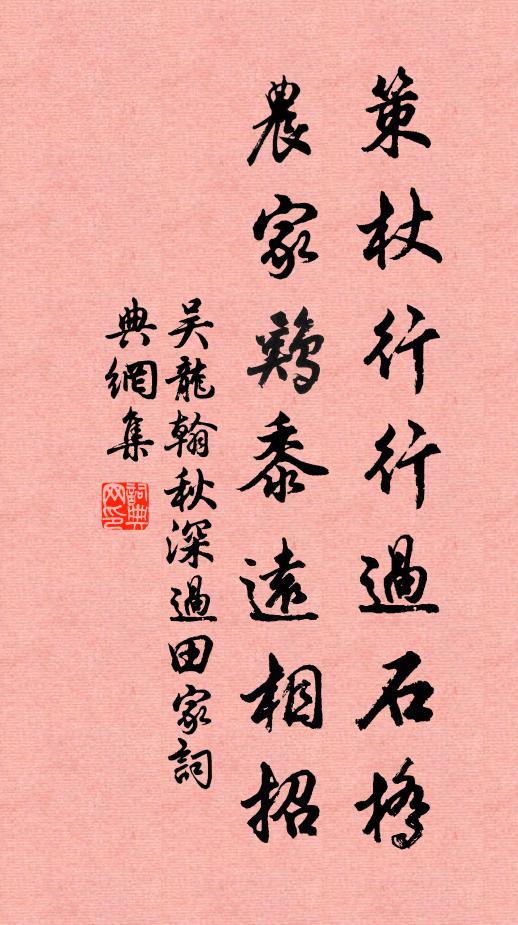 策杖行行過石橋
農家鷄黍遠相招
吴龍翰秋深過田家詞
典網集
詞典网印